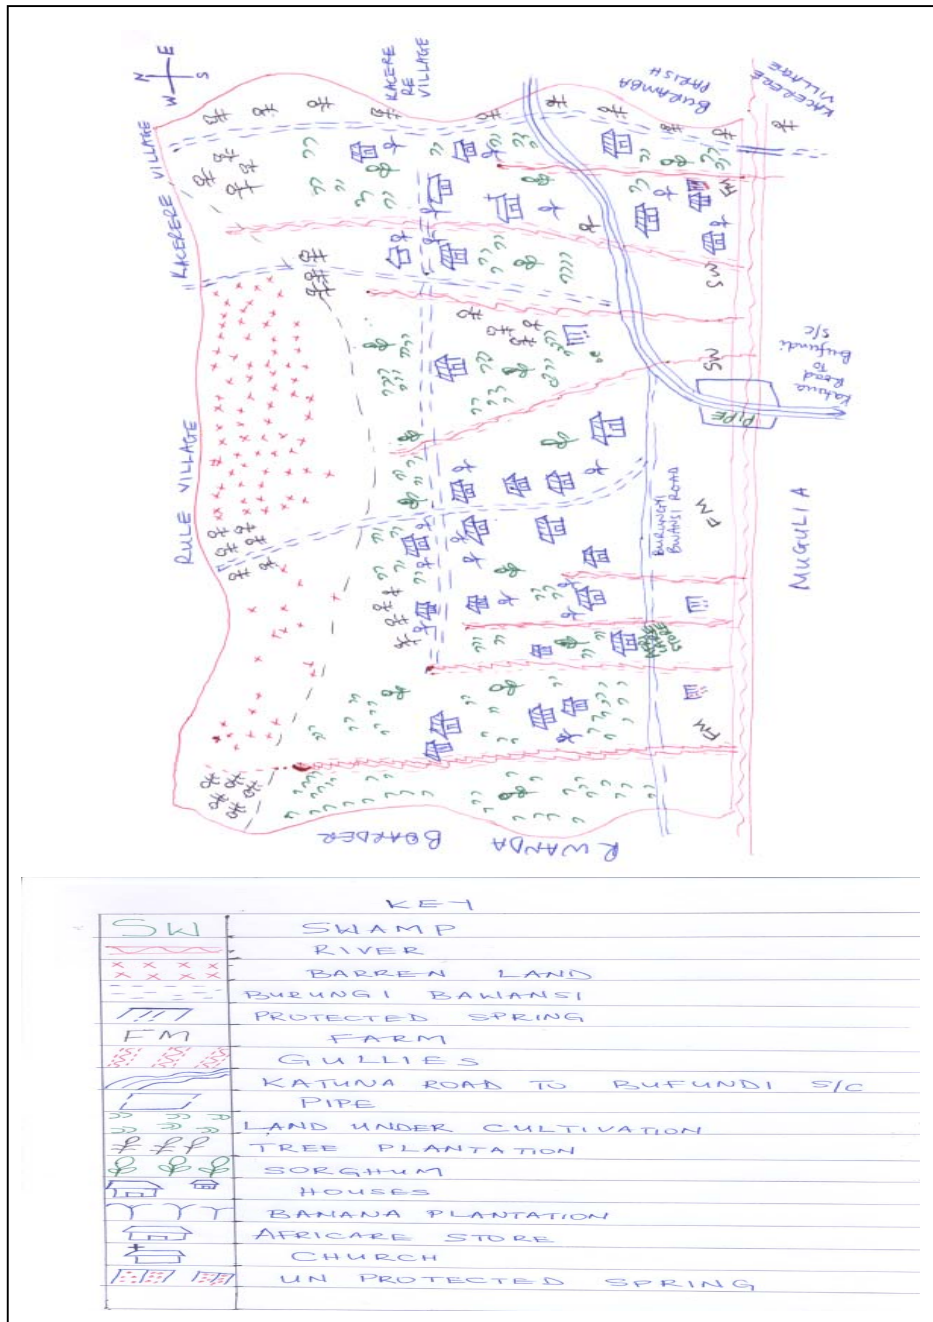 N
E
S
W
KACERE
RE
VILLAGE
BURAMBA
PARISH
KACERERE
VILLAGE
KACERERE VILLAGE
RULE VILLAGE
SW
SW
Katuna
Road
To
Bufundi
S/C
PIPE
BURUNGI
BWANSI ROAD
MUGULIA
FM
RWANDA BOARDER
KEY
SW SWAMP
RIVER
BARREN LAND
BURUNGI BAWANSI
PROTECTED SPRING
FM FARM
GULLIES
KATUNA ROAD TO BUFUNDI S/C
PIPE
LAND UNDER CULTIVATION
TREE PLANTATION
SORGHUM
HOUSES
BANANA PLANTATION
AFRICARE STORE
CHURCH
UN PROTECTED SPRING